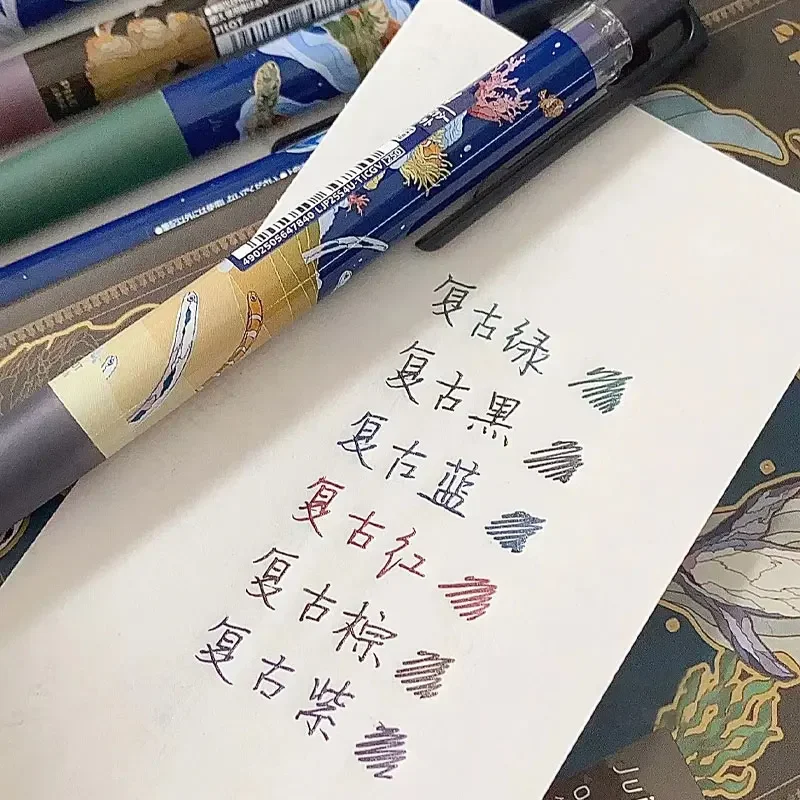 4902505647840 LJP25S4U-T(CGV)250
复古绿
复古黑
复古蓝
复古红
复古棕
复古紫